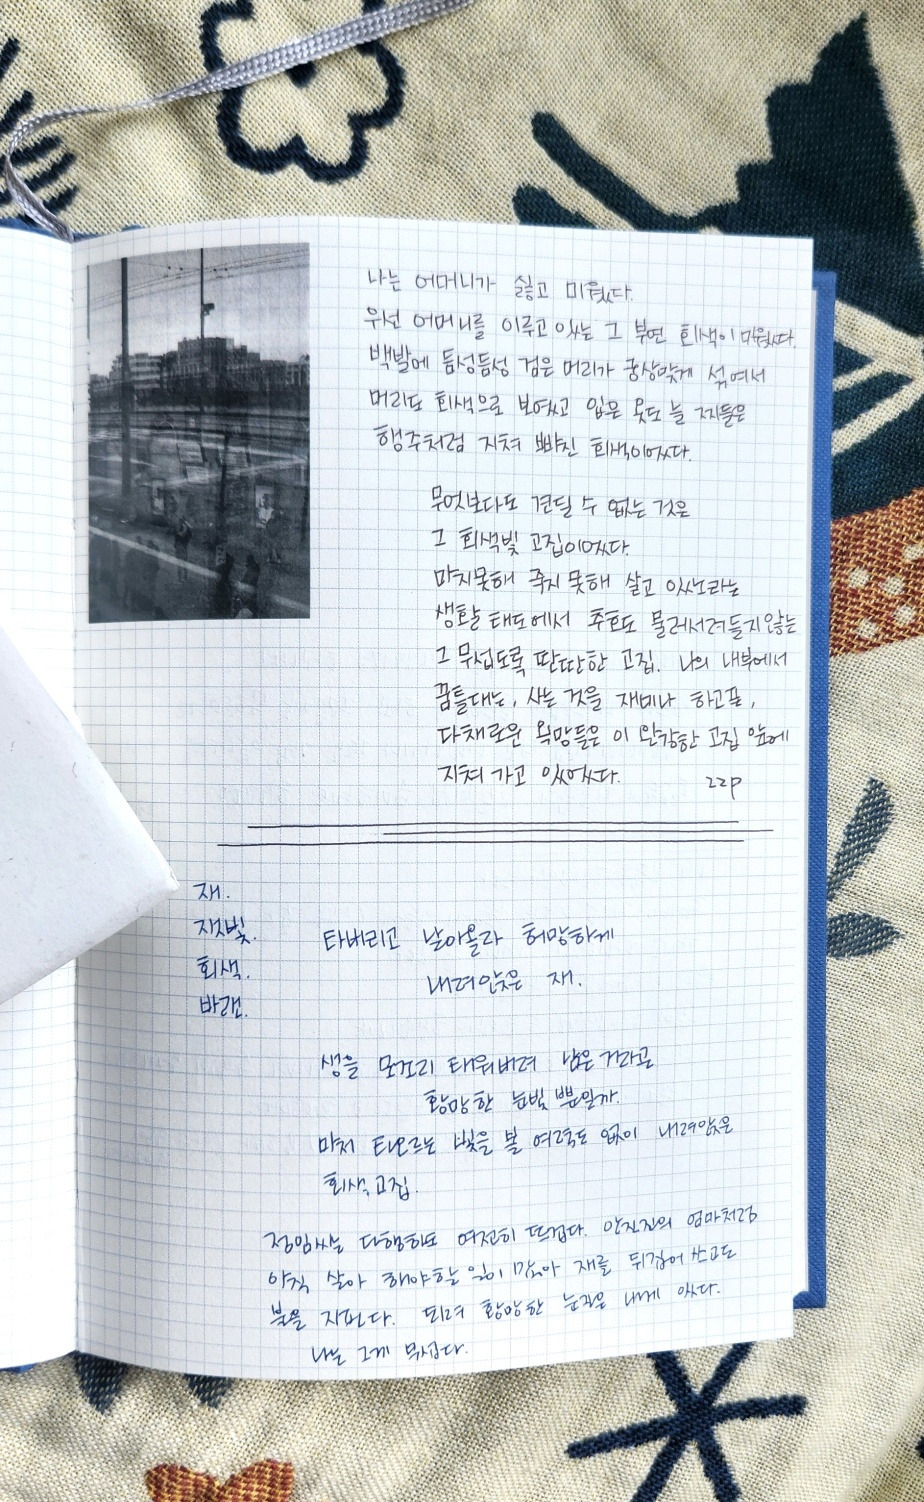 나는 어머니가 싫고 미웠다.
우선 어머니를 이루고 있는 그 부연 회색이 미웠다.
백발에 듬성듬성 검은 머리가 궁상맞게 섞여서
머리도 회색으로 보였고 입은 옷도 늘 찌들은
행주처럼 지쳐 빠진 회색이었다.
무엇보다도 견딜 수 없는 것은
그 회색빛 고집이었다.
마지못해 죽지 못해 살고 있노라는
생활 태도에서 추호도 물러서려들지않는
그 무섭도록 딴딴한 고집. 나의 내부에서
꿈틀대는, 사는 것을 재미나 하고픈,
다채로운 욕망들은 이 완강한 고집 앞에
지쳐 가고 있었다. 22p
재.
잿빛.
회색.
바랜.
타버리고 날아올라 허망하게
내려앉은 재.
생을 모조리 태워버려 남은 거라곤
황망한 눈빛 뿐일까.
마저 타오르는 빛을 볼 여력도 없이 내려앉은
회색 고집.
다행히도 여전히 뜨겁다. 엄마처럼
아직 살아 해야할 일이 많아 재를 뒤집어 쓰고도
불을 지핀다. 되려 황망한 눈빛은 내게 있다.
나는 그게 무섭다.